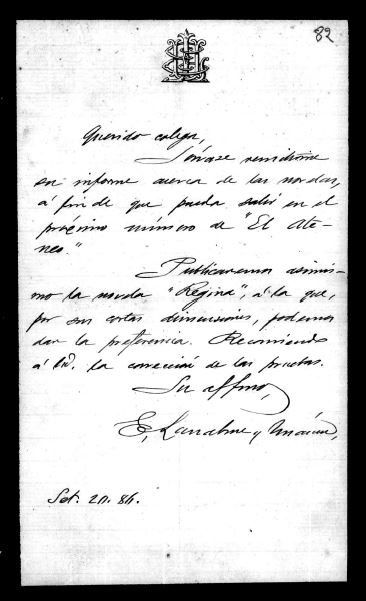 82
Querido colega,
Sírvase remitirme
su informe acerca de las novelas,
á fin de que pueda salir en el
próximo número de "El Ate-
neo."
Publicaremos asimis-
mo la novela "Regina", á la que,
por sus cortas dimensiones, podemos
dar la preferencia. Recomiendo
á Ud. la corrección de las pruebas.
Su affmo,
E, y
Set. 20. 86.